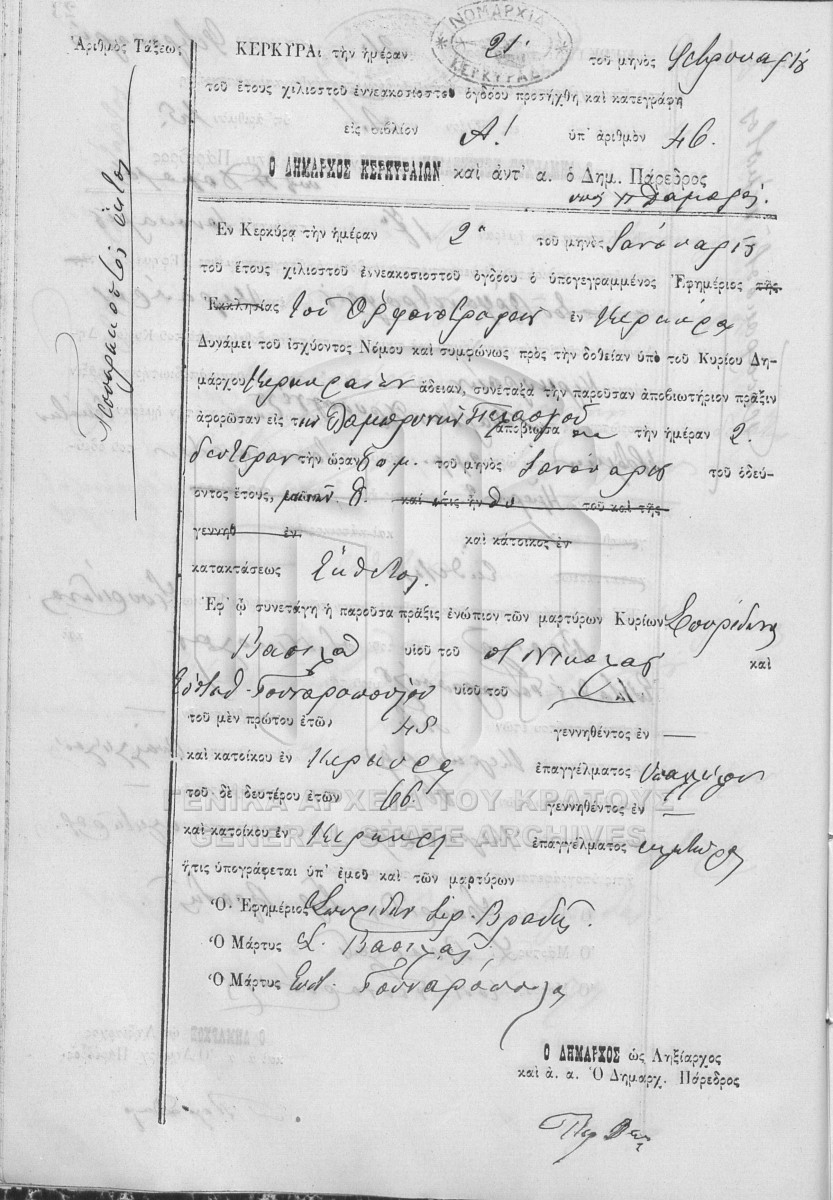 ΝΟΜΑΡΧΙΑ
ΚΕΡΚΥΡΑΣ
Ἀριθμὸς Τάξεως
Τεσσαρακοστὸς ἕκτος
ΚΕΡΚΥΡΑι τὴν ἡμέραν 21 τοῦ μηνὸς Φεβρουαρίου
τοῦ ἔτους χιλιοστοῦ ἐννεακοσιοστοῦ ὀγδόου προσήχθη καὶ κατεγράφη
εἰς βιβλίον Α! ὑπ' ἀριθμὸν 46.
Ο ΔΗΜΑΡΧΟΣ ΚΕΡΚΥΡΑΙΩΝ καὶ ἀντ' α. ὁ Δημ. Πάρεδρος
Ἐν Κερκύρᾳ τὴν ἡμέραν 2α τοῦ μηνὸς Ἰανουαρίου
τοῦ ἔτους χιλιοστοῦ ἐννεακοσιοστοῦ ὀγδόου ὁ ὑπογεγραμμένος Ἐφημέριος τῆς
Ἐκκλησίας τοῦ Ὀρφανοτροφείου ἐν Κερκύρᾳ
Δυνάμει τοῦ ἰσχύοντος Νόμου καὶ συμφώνως πρὸς τὴν δοθεῖσαν ὑπὸ τοῦ Κυρίου Δη-
μάρχου Κερκυραίων ἄδειαν, συνέταξα τὴν παροῦσαν ἀποβιωτήριον πρᾶξιν
ἀφορῶσαν εἰς τὴν Λαμπρινὴν Πελασγοῦ
ἀποβιώσασαν τὴν ἡμέραν 2.
δευτέραν τὴν ὥραν 5 π.μ. τοῦ μηνὸς Ἰανουαρίου τοῦ ὁδεύ-
οντος ἔτους, μηνῶν 8. καὶ ἥτις ἦν τοῦ καὶ τῆς
γεννηθ ἐν καὶ κάτοικος ἐν
κατακτάσεως Ἔκθετος.
Ἐφ' ᾧ συνετάγη ἡ παροῦσα πρᾶξις ἐνώπιον τῶν μαρτύρων Κυρίων Σπυρίδωνα
Βασιλᾶ υἱοῦ τοῦ π Νικολάου καὶ
Εὐσταθ. Γουναροπούλου υἱοῦ τοῦ
τοῦ μὲν πρώτου ἐτῶν 48 γεννηθέντος ἐν —
καὶ κατοίκου ἐν Κερκύρᾳ ἐπαγγέλματος Ὑπαλλήλου
τοῦ δὲ δευτέρου ἐτῶν 66 γεννηθέντος ἐν —
ΓΕΝΙΚΑ ΑΡΧΕΙΑ ΤΟΥ ΚΡΑΤΟΥΣ
GENERAL STATE ARCHIVES
καὶ κατοίκου ἐν Κερκύρᾳ ἐπαγγέλματος
ἥτις ὑπογράφεται ὑπ' ἐμοῦ καὶ τῶν μαρτύρων
Ὁ Ἐφημέριος Σπυρίδων
Ὁ Μάρτυς Σ. Βασιλᾶς
Ὁ Μάρτυς Εὐστ. Γουναρόπουλος
Ο ΔΗΜΑΡΧΟΣ ὡς Ληξίαρχος
καὶ ἀ. α. Ὁ Δημαρχ. Πάρεδρος